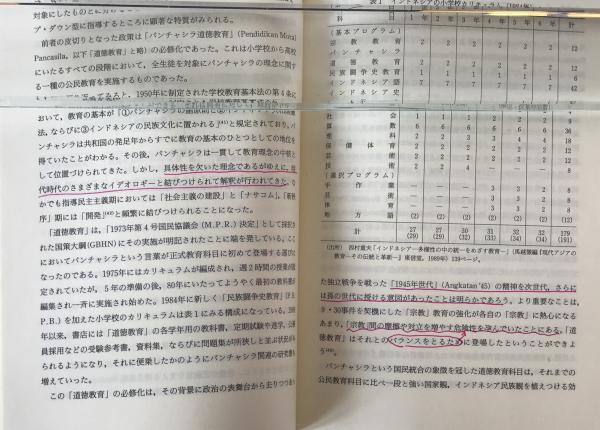 対象にしたものとに
プ・ダウン型に指導するところに顕著な特質がみられる。
前者の皮切りとなった政策は「パンチャシラ道徳教育」(Pendidikan Moral
Pancasila, 以下「道徳教育」と略)の必修化であった。これは小学校から高校
にいたるすべての段階において，全生徒を対象にパンチャシラの理念に関す
る一種の公民教育を実施するものであった。
1950年に制定された学校教育基本法の第4条に
おいて，教育の基本が「①パンチャシラ
法，ならびに③インドネシアの民族文化に置かれる」と規定されており，パ
ンチャシラは共和国の発足年からすでに教育の基本のひとつとしての地位を
得ていたことがわかる。その後，パンチャシラは一貫して教育理念の中核と
して位置づけられてきた。しかし，具体性を欠いた理念であるがゆえに，
代時代のさまざまなイデオロギーと結びつけられて解釈が行われてきた。
かでも指導民主主義期においては「社会主義の建設」と「ナサコム」，「新秩
序」期には「開発」と頻繁に結びつけられることになった。
「道徳教育」は，「1973年第4号国民協議会(M.P.R.)決定」として採択さ
れた国策大綱(GBHN)にその実施が明記されたことに端を発している。こ
においてパンチャシラという言葉が正式教育科目に初めて登場する運びと
なったのである。1975年にはカリキュラムが編成され，週2時間の授業が
定されていたが，5年の準備の後，80年にいたってようやく最初の教科書が
編集され一斉に実施され始めた。1984年に新しく「民族闘争史教育(P.S.
P.B.)を加えた小学校のカリキュラムは表1にみる構成になっている。
年以来，書店には「道徳教育」の各学年用の教科書，定期試験や進学，公
員採用などの受験参考書，資料集，ならびに問題集が所狭しと並ぶ状が
られるようになり，それに便乗したかのようにパンチャシラ関連の研究書も
増えていった。
この「道徳教育」の必修化は，その背景に政治の表舞台から去りつつあ
表1 インドネシアの小学校カリキュラム
科 目 1年 2年 3年 4年 5年 6年 計
(基本プログラム)
宗教教育 2 2 2 2 2 2 12
パンチャシラ
道徳教育 2 2 2 2 2 2 12
民族闘争史教育 1 1 1 1 1 1 6
インドネシア語 7 7 7 7 7 7 42
インドネシア史
社会 1 1 1 2
算数 6 6 6 6 6 6 36
理科 2 2 3 4 4 3 18
保健体育 2 2 2 2 2 2 12
芸術 2 2 2 2 2 2 12
技術 2 2 4
(選択プログラム)
手作業 3 3 2 8
芸術 3 3 2 8
体育 3 3 2 8
地方語 (2) (2) (2) (2) (2) (2) (12)
計 27 27 30 32 179
(29) (29) (32) (33) (191)
(出所) 西村重夫「インドネシア—多様性の中の統一をめざす教育—」(馬越徹編『現代アジアの
教育—その伝統と革新—』東信堂，1989年) 139ページ。
た独立戦争を戦った「1945年世代」(Angkatan '45)の精神を次世代，さらに
は孫の世代に授ける意図があったことは明らかであろう。より重要なことは，
9・30事件を契機とした「宗教」教育の強化が各自の「宗教」に熱心になる
あまり，「宗教」間の摩擦や対立を増やす危険性を孕んでいたことにある。「道
徳教育」はそれとのバランスをとるために登場したということができよ
う。
パンチャシラという国民統合の象徴を冠した道徳教育科目は，それまでの
公民教育科目に比べ一段と強い国家観，インドネシア民族観を植えつける効